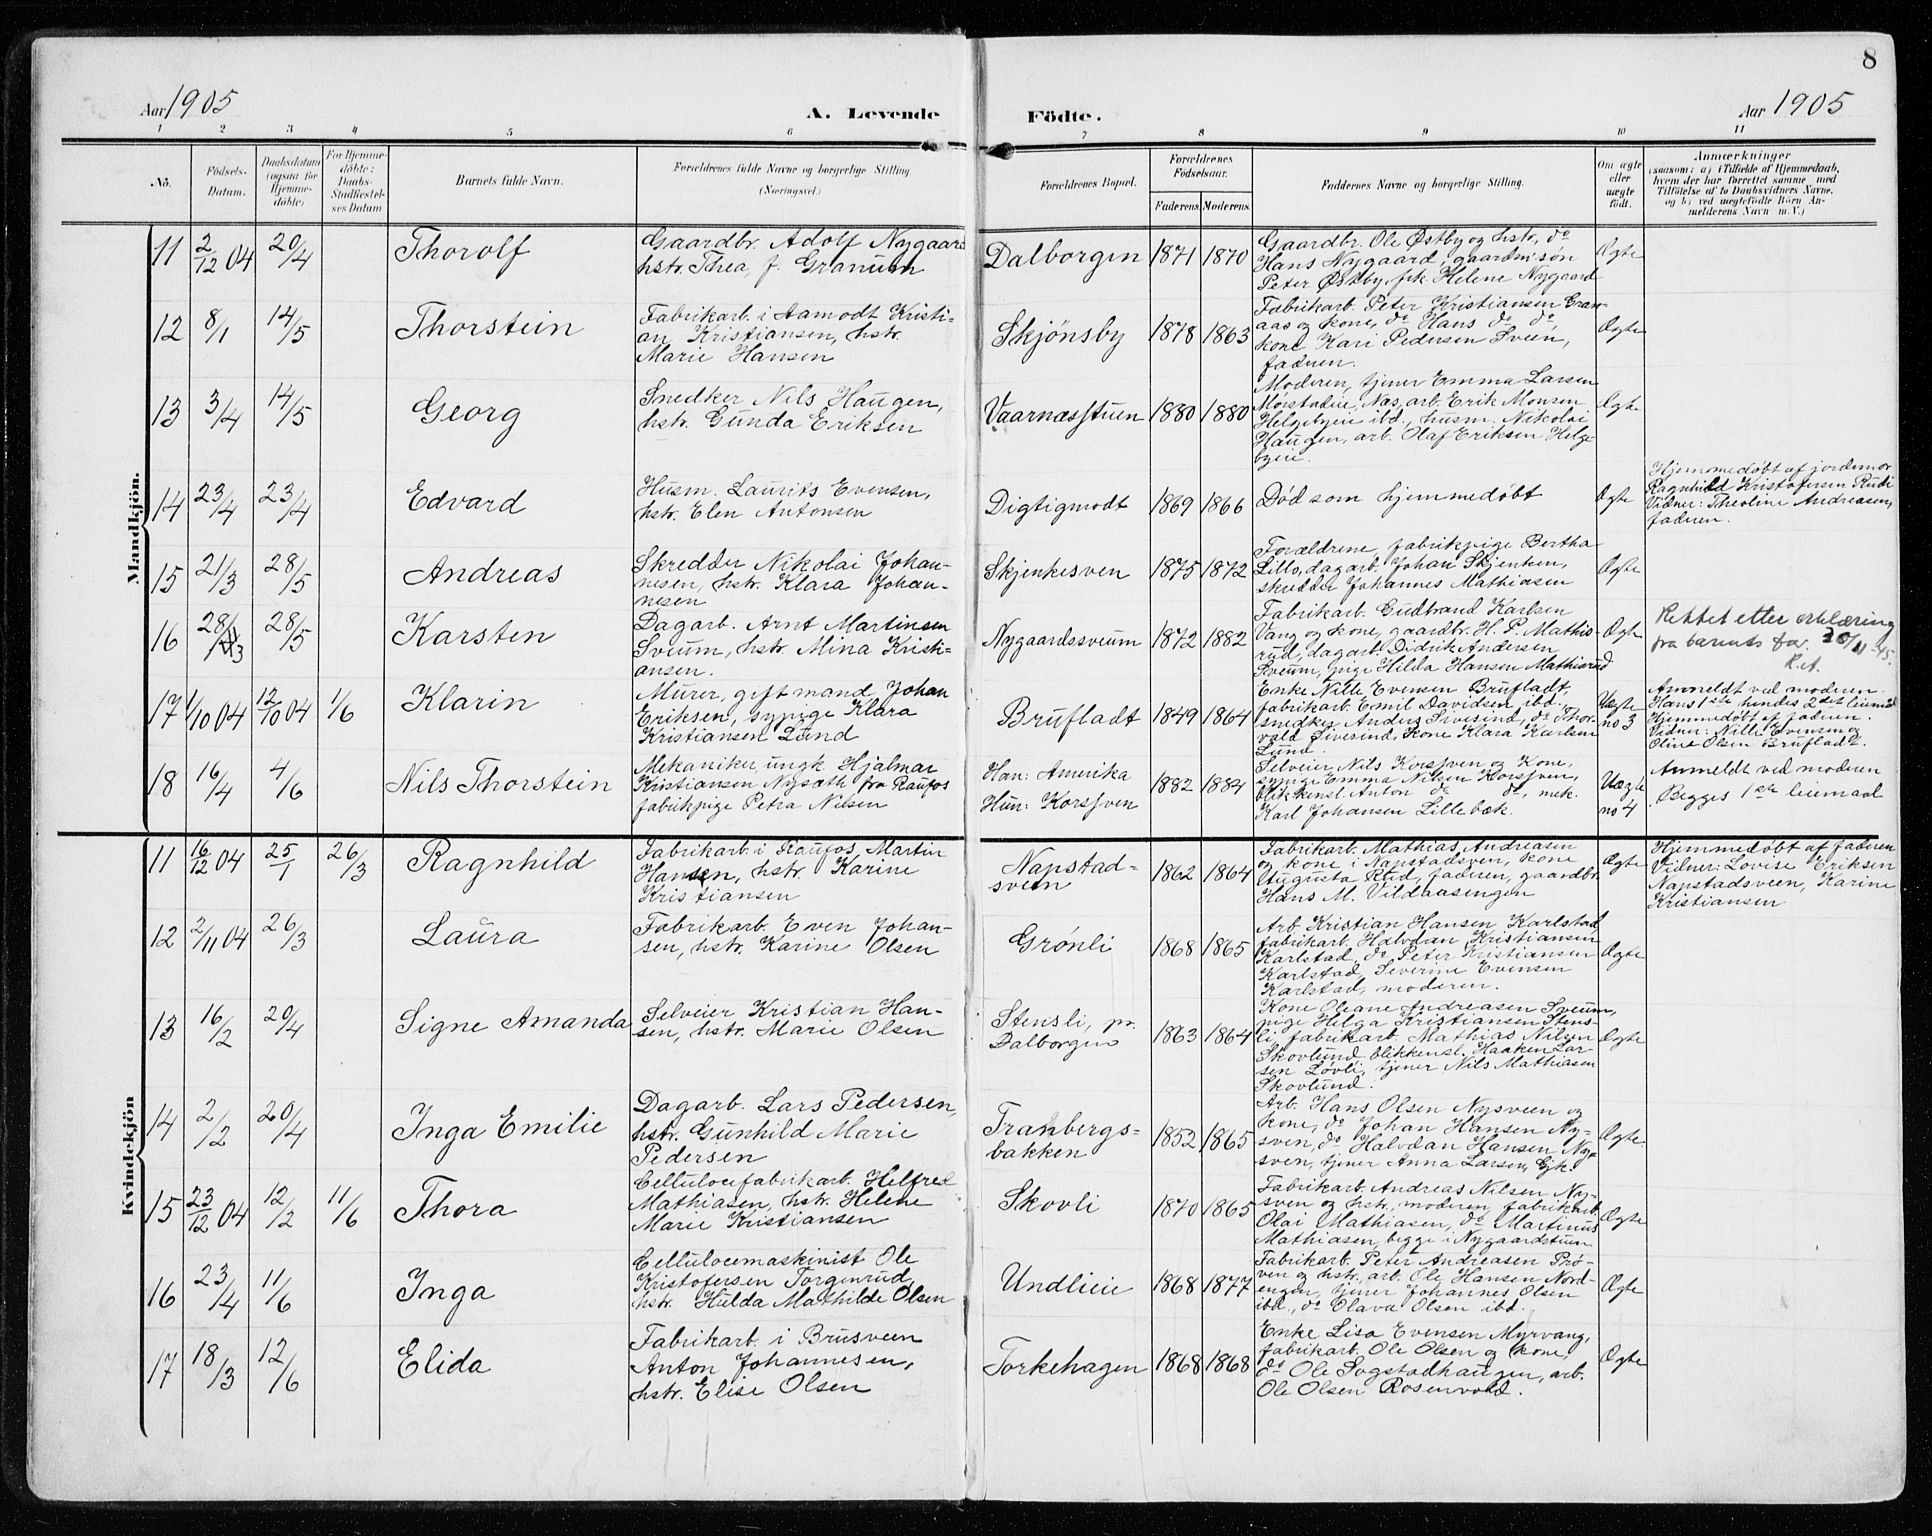 8
Aar 1905
A. Levende
Födte.
Aar 1905
1 2 3 4 5 6 7 8 9 10 11
No.
Födsels-
Datum.
Daabsdatum
(ogsaa for
Hjemme-
döbte)
For Hjemme-
döbte:
Daabs-
Stadfæstel-
ses Datum
Barnets fulde Navn.
Forældrenes fulde Navne og borgerlige Stilling.
(Næringsvei.)
Forældrenes Bopæl.
Forældrenes
Födselsaar.
Faderens. Moderens.
Faddernes Navne og borgerlige Stilling.
Om ægte
eller
uægte
födt.
Anmærkninger
(saasom: a) i Tilfælde af Hjemmedaab,
hvem der har forrettet samme med
Tilföielse af to Daabsvidners Navne,
og b) ved uægtefödte Börn An-
melderens Navn m. V.)
Mandkjön.
11 2/12 04 20/4 Thorolf
Gaardbr. Adolf Nygaard
hstr. Thea, f. Granum
Dalborgen 1871 1870
Gaardbr. Ole Østby og hstr., do
Hans Nygaard, gaardm.søn
Peter Østby, frk. Helene Nygaard
Ægte
12 8/1 14/5 Thorstein
Fabrikarb. i Aamodt Kristi-
an Kristiansen, hstr.
Marie Hansen
Skjønsby 1878 1863
Fabrikarb. Peter Kristiansen Gran-
aas og kone, do Hans do do,
kone Kari Pedersen Sveen,
faderen.
Ægte
13 3/4 14/5 Georg
Snedker Nils Haugen,
hstr. Gunda Eriksen
Vaarnæsstuen 1880 1880
Moderen, tjener Emma Larsen
Mørstadeie, Næs, arb. Erik Monsen
Helgebyeie ibd., husm. Nikolai
Haugen, arb. Olaf Eriksen Helge-
byeie.
Ægte
14 23/4 23/4 Edvard
Husm. Laurits Evensen,
hstr. Elen Antonsen
Digtigmodt 1869 1866
Død som hjemmedøbt
Ægte
Hjemmedøbt af jordemor
Ragnhild Kristofersen Rudi
Vidner: Theoline Andreasen,
faderen.
15 21/3 28/5 Andreas
Skredder Nikolai Johan-
nesen, hstr. Klara Johan-
nesen
Skjenkesven 1875 1872
Forældrene, fabrikpige Bertha
Lillo, dagarb. Johan Skjenken,
skredder Johannes Mathiasen
Ægte
16 28/3 28/5 Karsten
Dagarb. Arnt Martinsen
Sveum, hstr. Mina Kristi-
ansen.
Nygaardssveum 1872 1882
Fabrikarb. Gudbrand Karlsen
Vang og kone, gaardbr. H. P. Mathis-
rud, dagarb. Didrik Andersen
Sveum, pige Hilda Hansen Mathisrud
Ægte
Rettet etter erklæring
fra barnets far. 20/11 -45.
17 1/10 04 12/10 04 1/6 Klarin
Murer, gift mand, Johan
Eriksen, sypige Klara
Kristiansen Lund
Brufladt 1849 1864
Enke Nille Evensen Brufladt,
fabrikarb. Emil Davidsen ibd.,
snedker Anders Sivesind, do Thor-
vald Sivesind, kone Klara Karlsen
Lund.
Uægte
no 3
Anmeldt ved moderen.
Hans 1ste hendes 2det leiermaal
Hjemmedøbt af faderen.
Vidner: Nille Evensen og
Oline Olsen Brufladt.
18 16/4 4/6 Nils Thorstein
Mekaniker, ungk. Hjalmar
Kristiansen Nysæth fra Raufos
fabrikpige Petra Nilsen
Han: Amerika
Hun: Korssven
1882 1884
Selveier Nils Korssven og kone,
sypige Emma Nilsen Korssven,
blikkensl. Anton do do, mek.
Karl Johansen Lillebæk.
Uægte
no 4
Anmeldt ved moderen
Begges 1ste leiermaal
Kvindekjön
11 16/12 04 25/1 26/3 Ragnhild
Fabrikarb. i Raufos, Martin
Hansen, hstr. Karine
Kristiansen
Napstad-
sveen
1862 1864
Fabrikarb. Mathias Andreasen
og kone i Napstadsven, kone
Augusta Rud, faderen, gaardbr.
Hans M. Vildaasengen
Ægte
Hjemmedøbt af faderen
Vidner: Lovise Eriksen
Napstadsveen, Karine
Kristiansen
12 2/11 04 26/3 Laura
Fabrikarb. Even Johan-
sen, hstr. Karine Olsen
Grønli 1868 1865
Arb. Kristian Hansen Karlstad
fabrikarb. Halvdan Kristiansen
Karlstad, do Peter Kristiansen
Karlstad, Severine Evensen
Karlstad, moderen.
Ægte
13 16/2 20/4 Signe Amanda
Selveier Kristian Han-
sen, hstr. Marie Olsen
Stensli, pr.
Dalborgen
1863 1864
Kone Oleane Andreasen Sveum,
pige Helga Kristiansen Stens-
li, fabrikarb. Mathias Nilsen
Skovlund, blikkensl. Haaken Lar-
sen Løvli, tjener Nils Mathiasen
Skovlund.
Ægte
14 2/2 20/4 Inga Emilie
Dagarb. Lars Pedersen,
hstr. Gunhild Marie
Pedersen
Tranbergs-
bakken
1852 1865
Arb. Hans Olsen Nysveen og
kone, do Johan Hansen Ny-
sven, do Halvdan Hansen Ny-
sven, tjener Anna Larsen, Gjk.
Ægte
15 23/12 04 12/2 11/6 Thora
Cellulocefabrikarb. Helfred
Mathiasen, hstr. Helene
Marie Kristiansen
Skovli 1870 1865
Fabrikarb. Andreas Nilsen Ny-
sven og hstr., moderen, fabrikarb.
Olai Mathiasen, do Martinus
Mathiasen, begge i Nygaardstuen
Ægte
16 23/4 11/6 Inga
Cellulocemaskinist Ole
Kristofersen Torgenrud,
hstr. Hulda Mathilde Olsen
Undlieie 1868 1877
Fabrikarb. Peter Andreasen Prø-
ven og hstr., arb. Ole Hansen Nord-
engen, tjener Johannes Olsen
ibd., do Olava Olsen ibd.
Ægte
17 18/3 12/6 Elida
Fabrikarb. i Brusveen
Anton Johannesen,
hstr. Elise Olsen
Torkehagen 1868 1868
Enke Lisa Evensen Myrvang,
fabrikarb. Ole Olsen og kone,
do Ole Sogstadhaugen, arb.
Ole Olsen Rosenvold.
Ægte